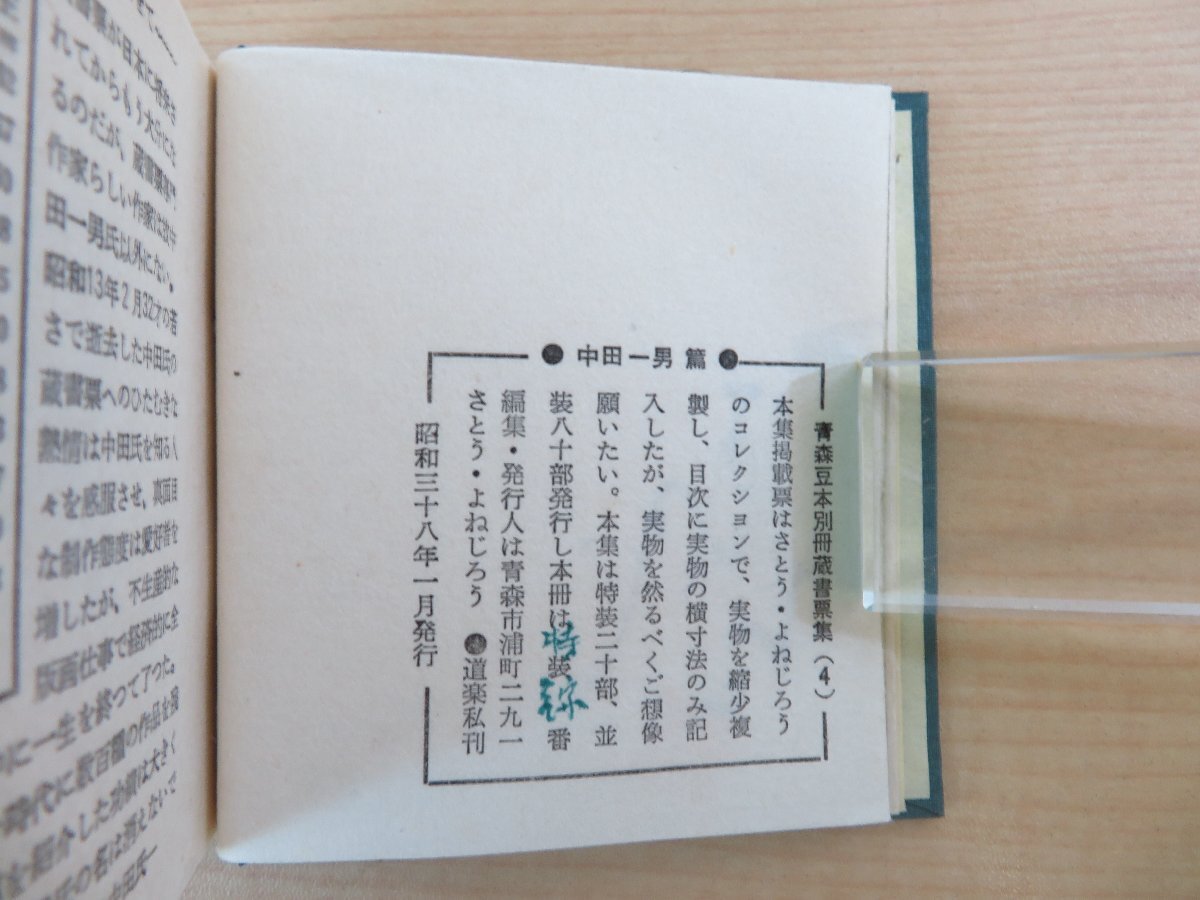 れてからもう大分にな
るのだが、蔵書票専門
作家らしい作家は故中
田一男氏以外にない。
昭和13年2月32才の若
さで逝去した中田氏の
蔵書票へのひたむきな
熱情は中田氏を知る人
々を感服させ、真面目
な制作態度は愛好者を
増したが、不生産的な
版画仕事で経済的に全
に一生を終つて了つた。
時代に数百種の作品を
紹介した功績は大きく
氏の名は消えないで
青森豆本別冊蔵書票集(4)
中田一男篇
本集掲載票はさとう・よねじろう
のコレクシヨンで、実物を縮少複
製し、目次に実物の横寸法のみ記
入したが、実物を然るべくご想像
願いたい。本集は特装二十部、並
装八十部発行し本冊は特装番
編集・発行人は青森市浦町二九一
さとう・よねじろう ●道楽私刊
昭和三十八年一月発行